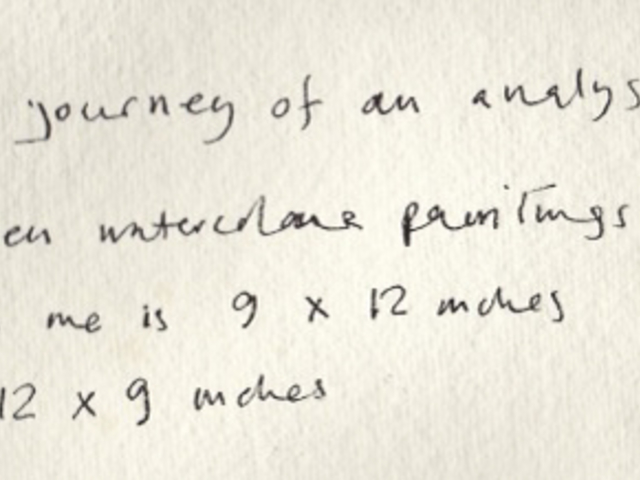 journey of an analys
en watercolour paintings
me is 9 x 12 inches
12 x 9 inches